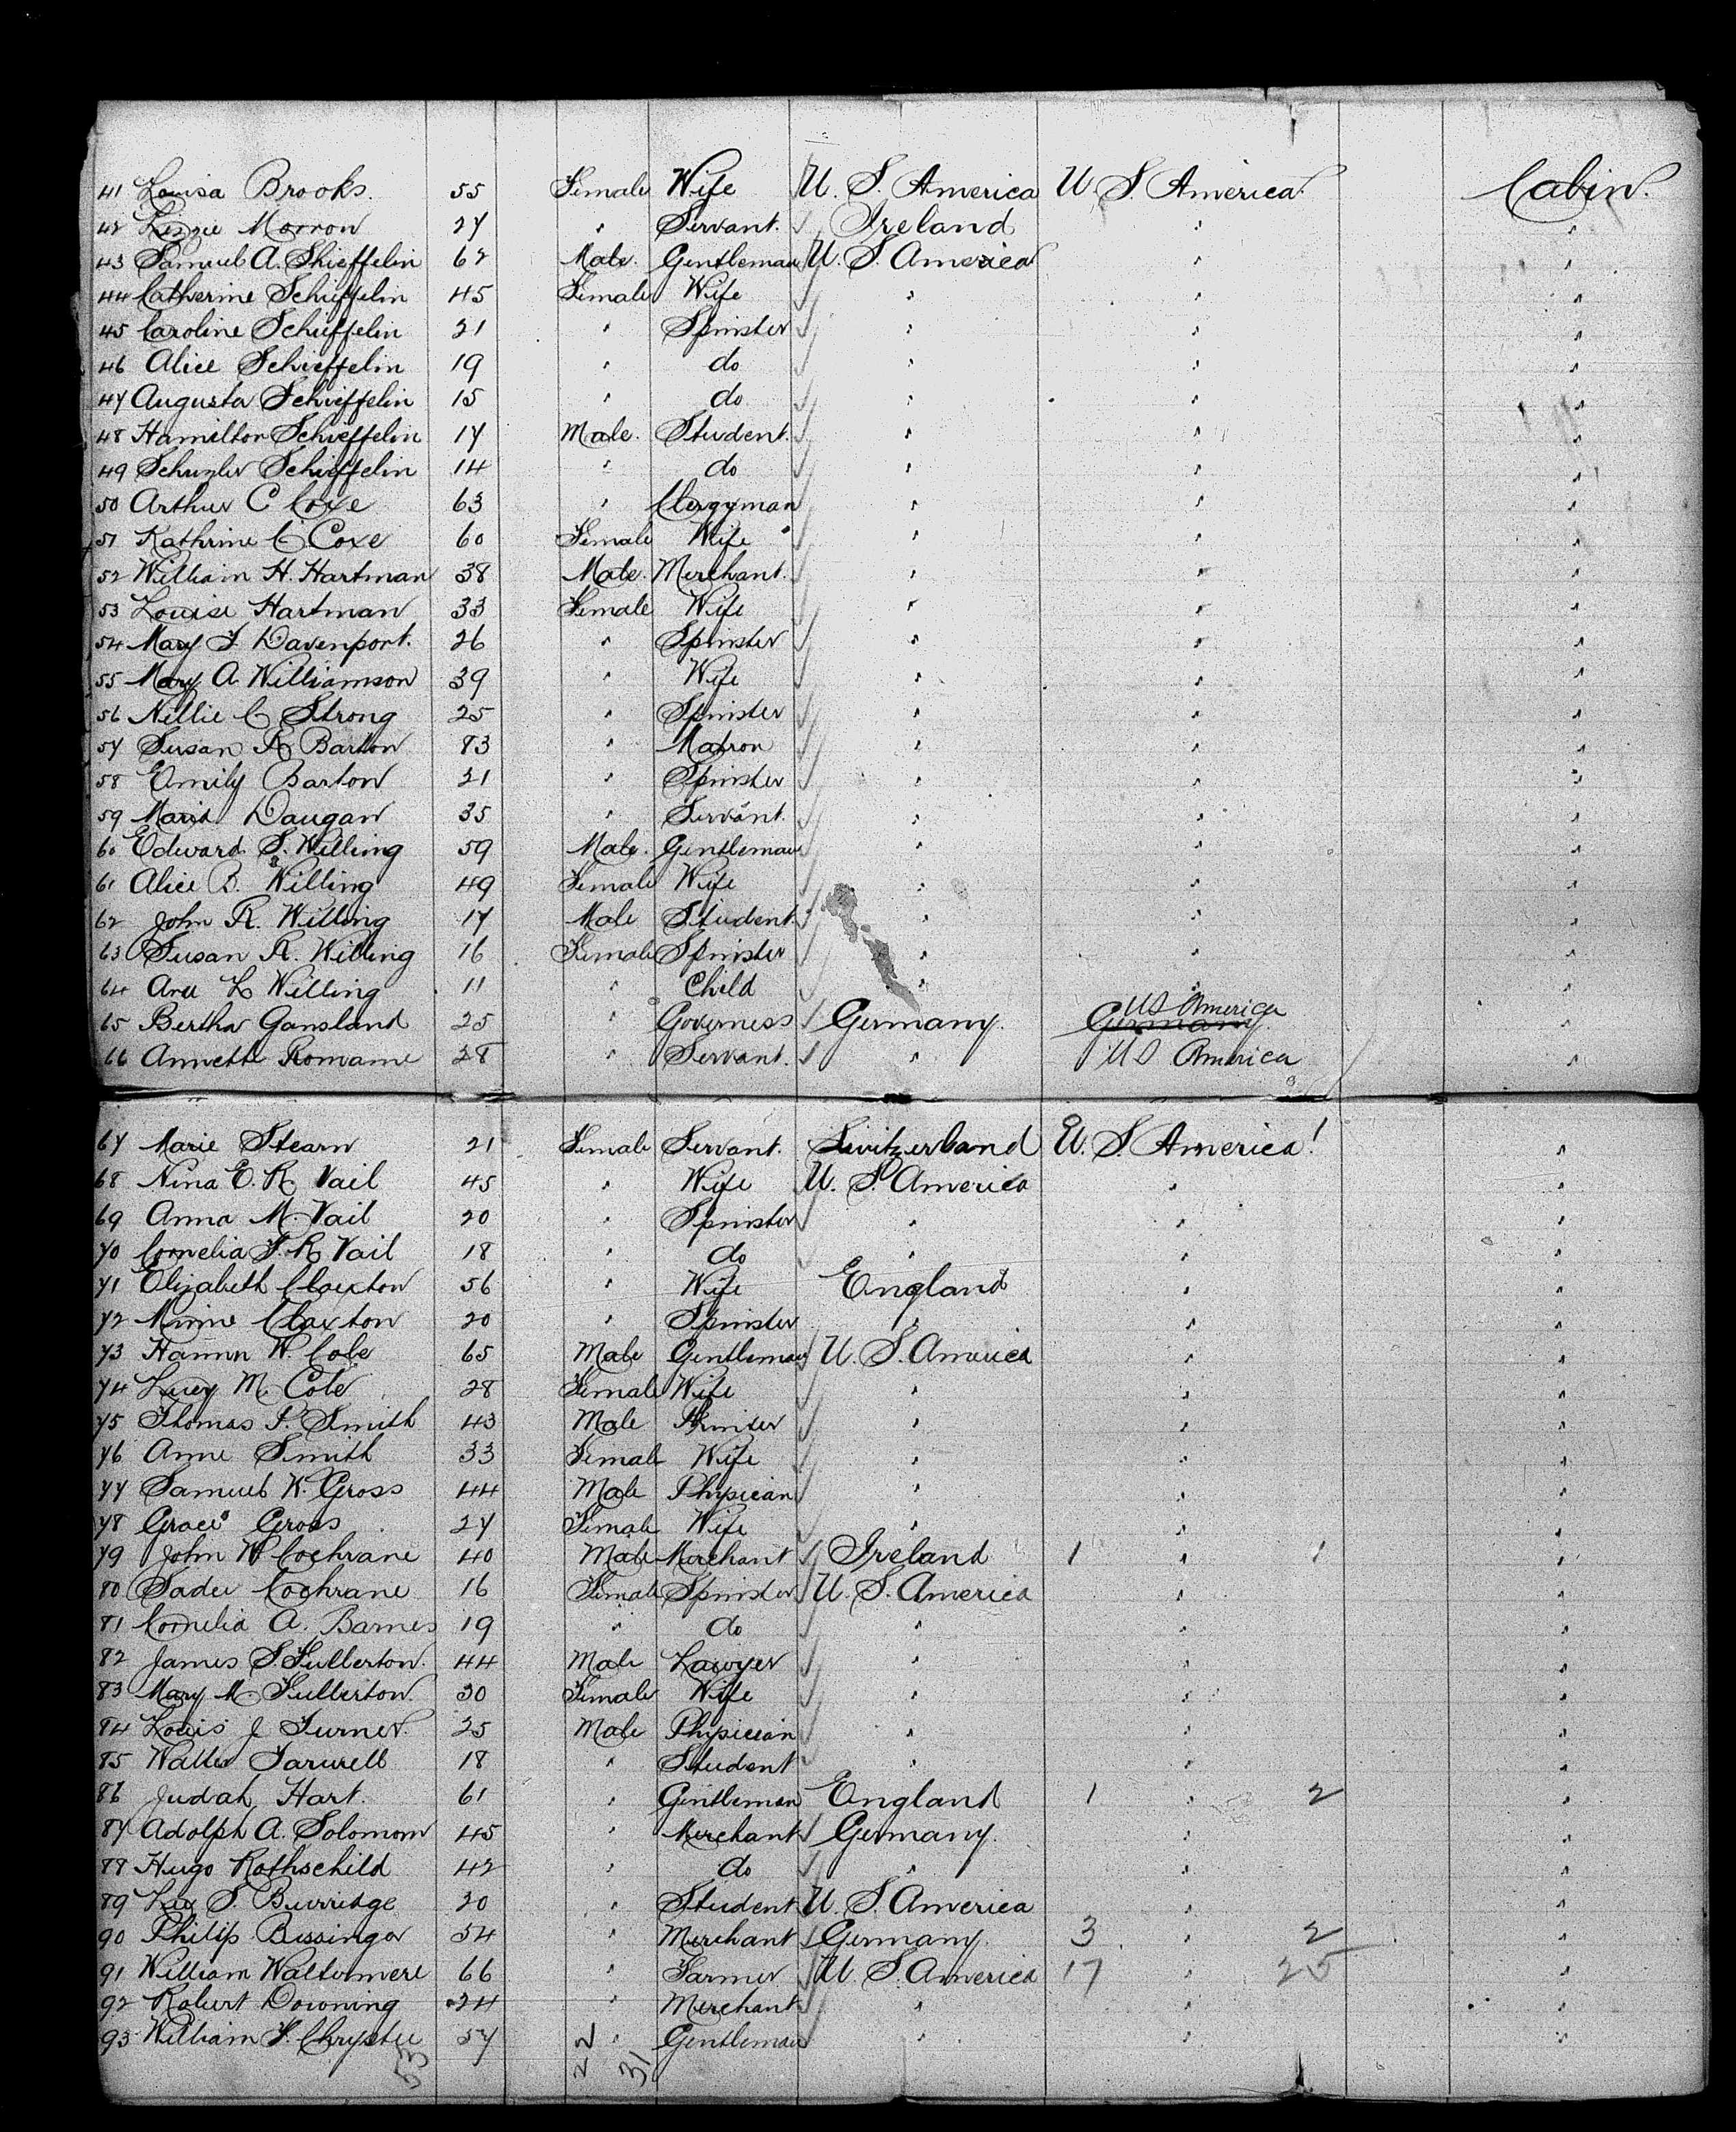 41 Louisa Brooks. 55 Female Wife U. S. America U. S. America. Cabin.
42 Lizzie Morrow 27 " Servant. Ireland " "
43 Samuel A. Shieffelin 62 Male. Gentleman U. S. America " "
44 Catherine Schieffelin 45 Female Wife " " "
45 Caroline Schieffelin 21 " Spinster " " "
46 Alice Schieffelin 19 " do " " "
47 Augusta Schieffelin 15 " do " " "
48 Hamilton Schieffelin 17 Male. Student. " " "
49 Schuyler Schieffelin 14 " do " " "
50 Arthur C Coxe 63 " Clergyman " " "
51 Kathrine C Coxe 60 Female Wife " " "
52 William H. Hartman 38 Male. Merchant. " " "
53 Louise Hartman 33 Female Wife " " "
54 Mary F. Davenport. 26 " Spinster " " "
55 Mary A. Williamson 39 " Wife " " "
56 Nellie C Strong 25 " Spinster " " "
57 Susan R Barton 83 " Matron " " "
58 Emily Barton 21 " Spinster " " "
59 Maria Daugan 35 " Servant. " " "
60 Edward S. Willing 59 Male. Gentleman " " "
61 Alice B. Willing 49 Female Wife " " "
62 John R. Willing 17 Male Student. " " "
63 Susan R. Willing 16 Female Spinster " " "
64 Ava L Willing 11 " Child " " "
65 Bertha Gansland 25 " Governess Germany. Germany. US America "
66 Annette Romame 28 " Servant. " US America "
67 Marie Stearn 21 Female Servant. Switzerland U. S. America! "
68 Nina E. R Vail 45 " Wife U. S. America " "
69 Anna M. Vail 20 " Spinster " " "
70 Cornelia F. R Vail 18 " do " " "
71 Elizabeth Claxton 56 " Wife England " "
72 Minnie Claxton 20 " Spinster " " "
73 W. Cole 65 Male Gentleman U. S. America " "
74 Lucy M. Cole 28 Female Wife " " "
75 Thomas P. Smith 43 Male Printer " " "
76 Anne Smith 33 Female Wife " " "
77 Samuel W. Gross 44 Male Physician " " "
78 Grace Gross 27 Female Wife " " "
79 John W Cochrane 40 Male Merchant Ireland 1 " 1 "
80 Sadie Cochrane 16 Female Spinster U. S. America " "
81 Cornelia A. Barnes 19 " do " " "
82 James S. Fullerton. 44 Male Lawyer " " "
83 Mary M. Fullerton. 30 Female Wife " " "
84 Louis J Turner. 25 Male Physician " " "
85 Walter Farwell 18 " Student " " "
86 Judah Hart. 61 " Gentleman England 1 " 2 "
87 Adolph A. Solomon 45 " Merchant Germany. " "
88 Hugo Rothschild 42 " do " " "
89 Lee S. Burridge 20 " Student U. S. America " "
90 Philip Bissinger 54 " Merchant Germany. 3 " 2 "
91 William 66 " Farmer U. S. America 17 " 25 "
92 Robert Downing 24 " Merchant " " "
93 William F. Chrystie 57 " Gentleman " " "
53 22 31